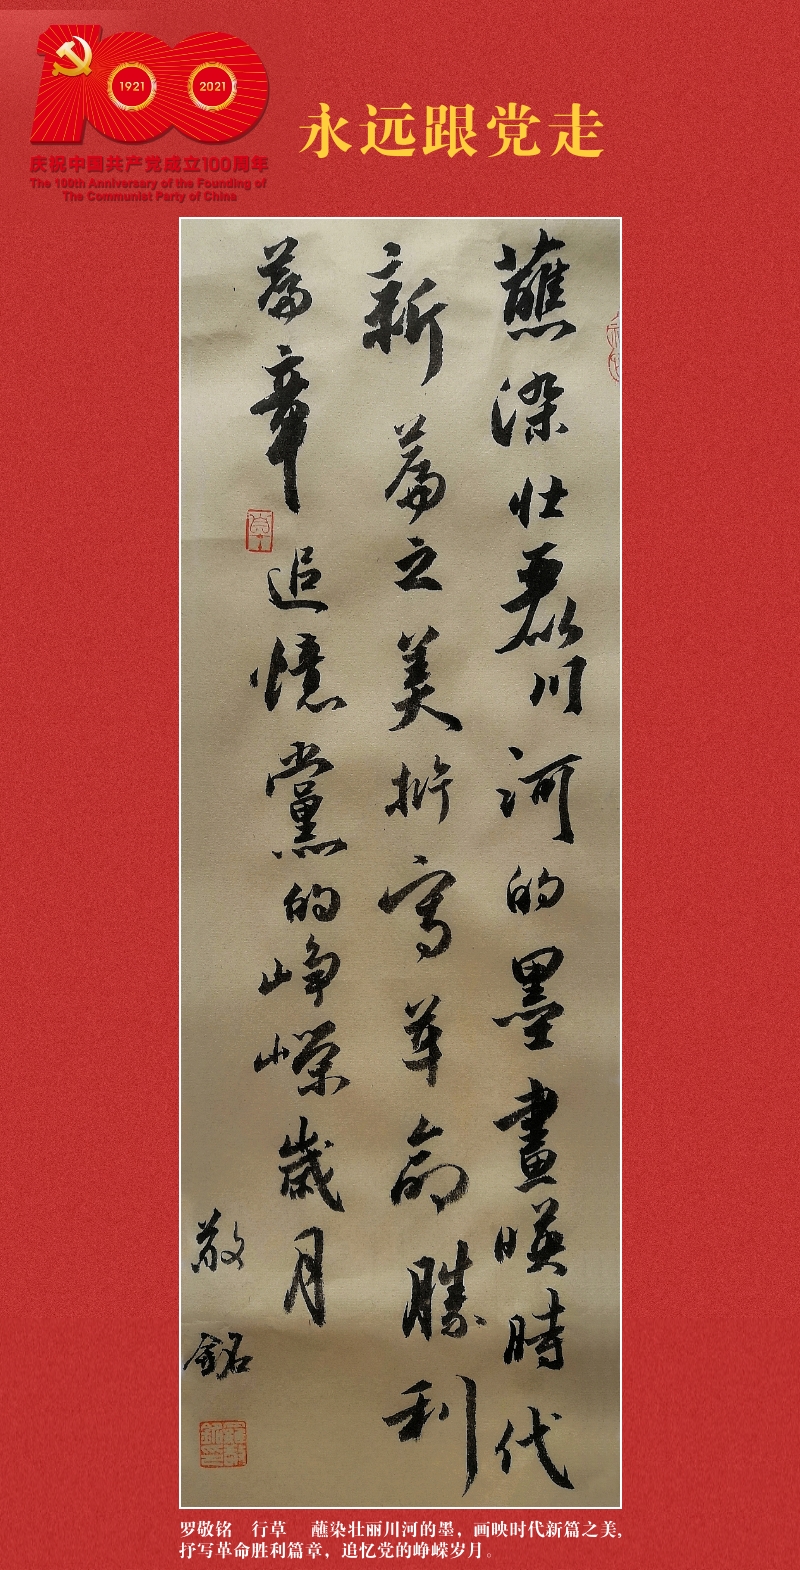 1921
2021
庆祝中国共产党成立100周年
The 100th Anniversary of the Founding of
The Communist Party of China
永远跟党走
蘸染壮麗川河的墨畫暎時代
新篇之美抒寫革命勝利
篇章追憶黨的崢嶸歲月
敬銘
罗敬铭 行草 蘸染壮丽川河的墨，画映时代新篇之美，
抒写革命胜利篇章，追忆党的峥嵘岁月。